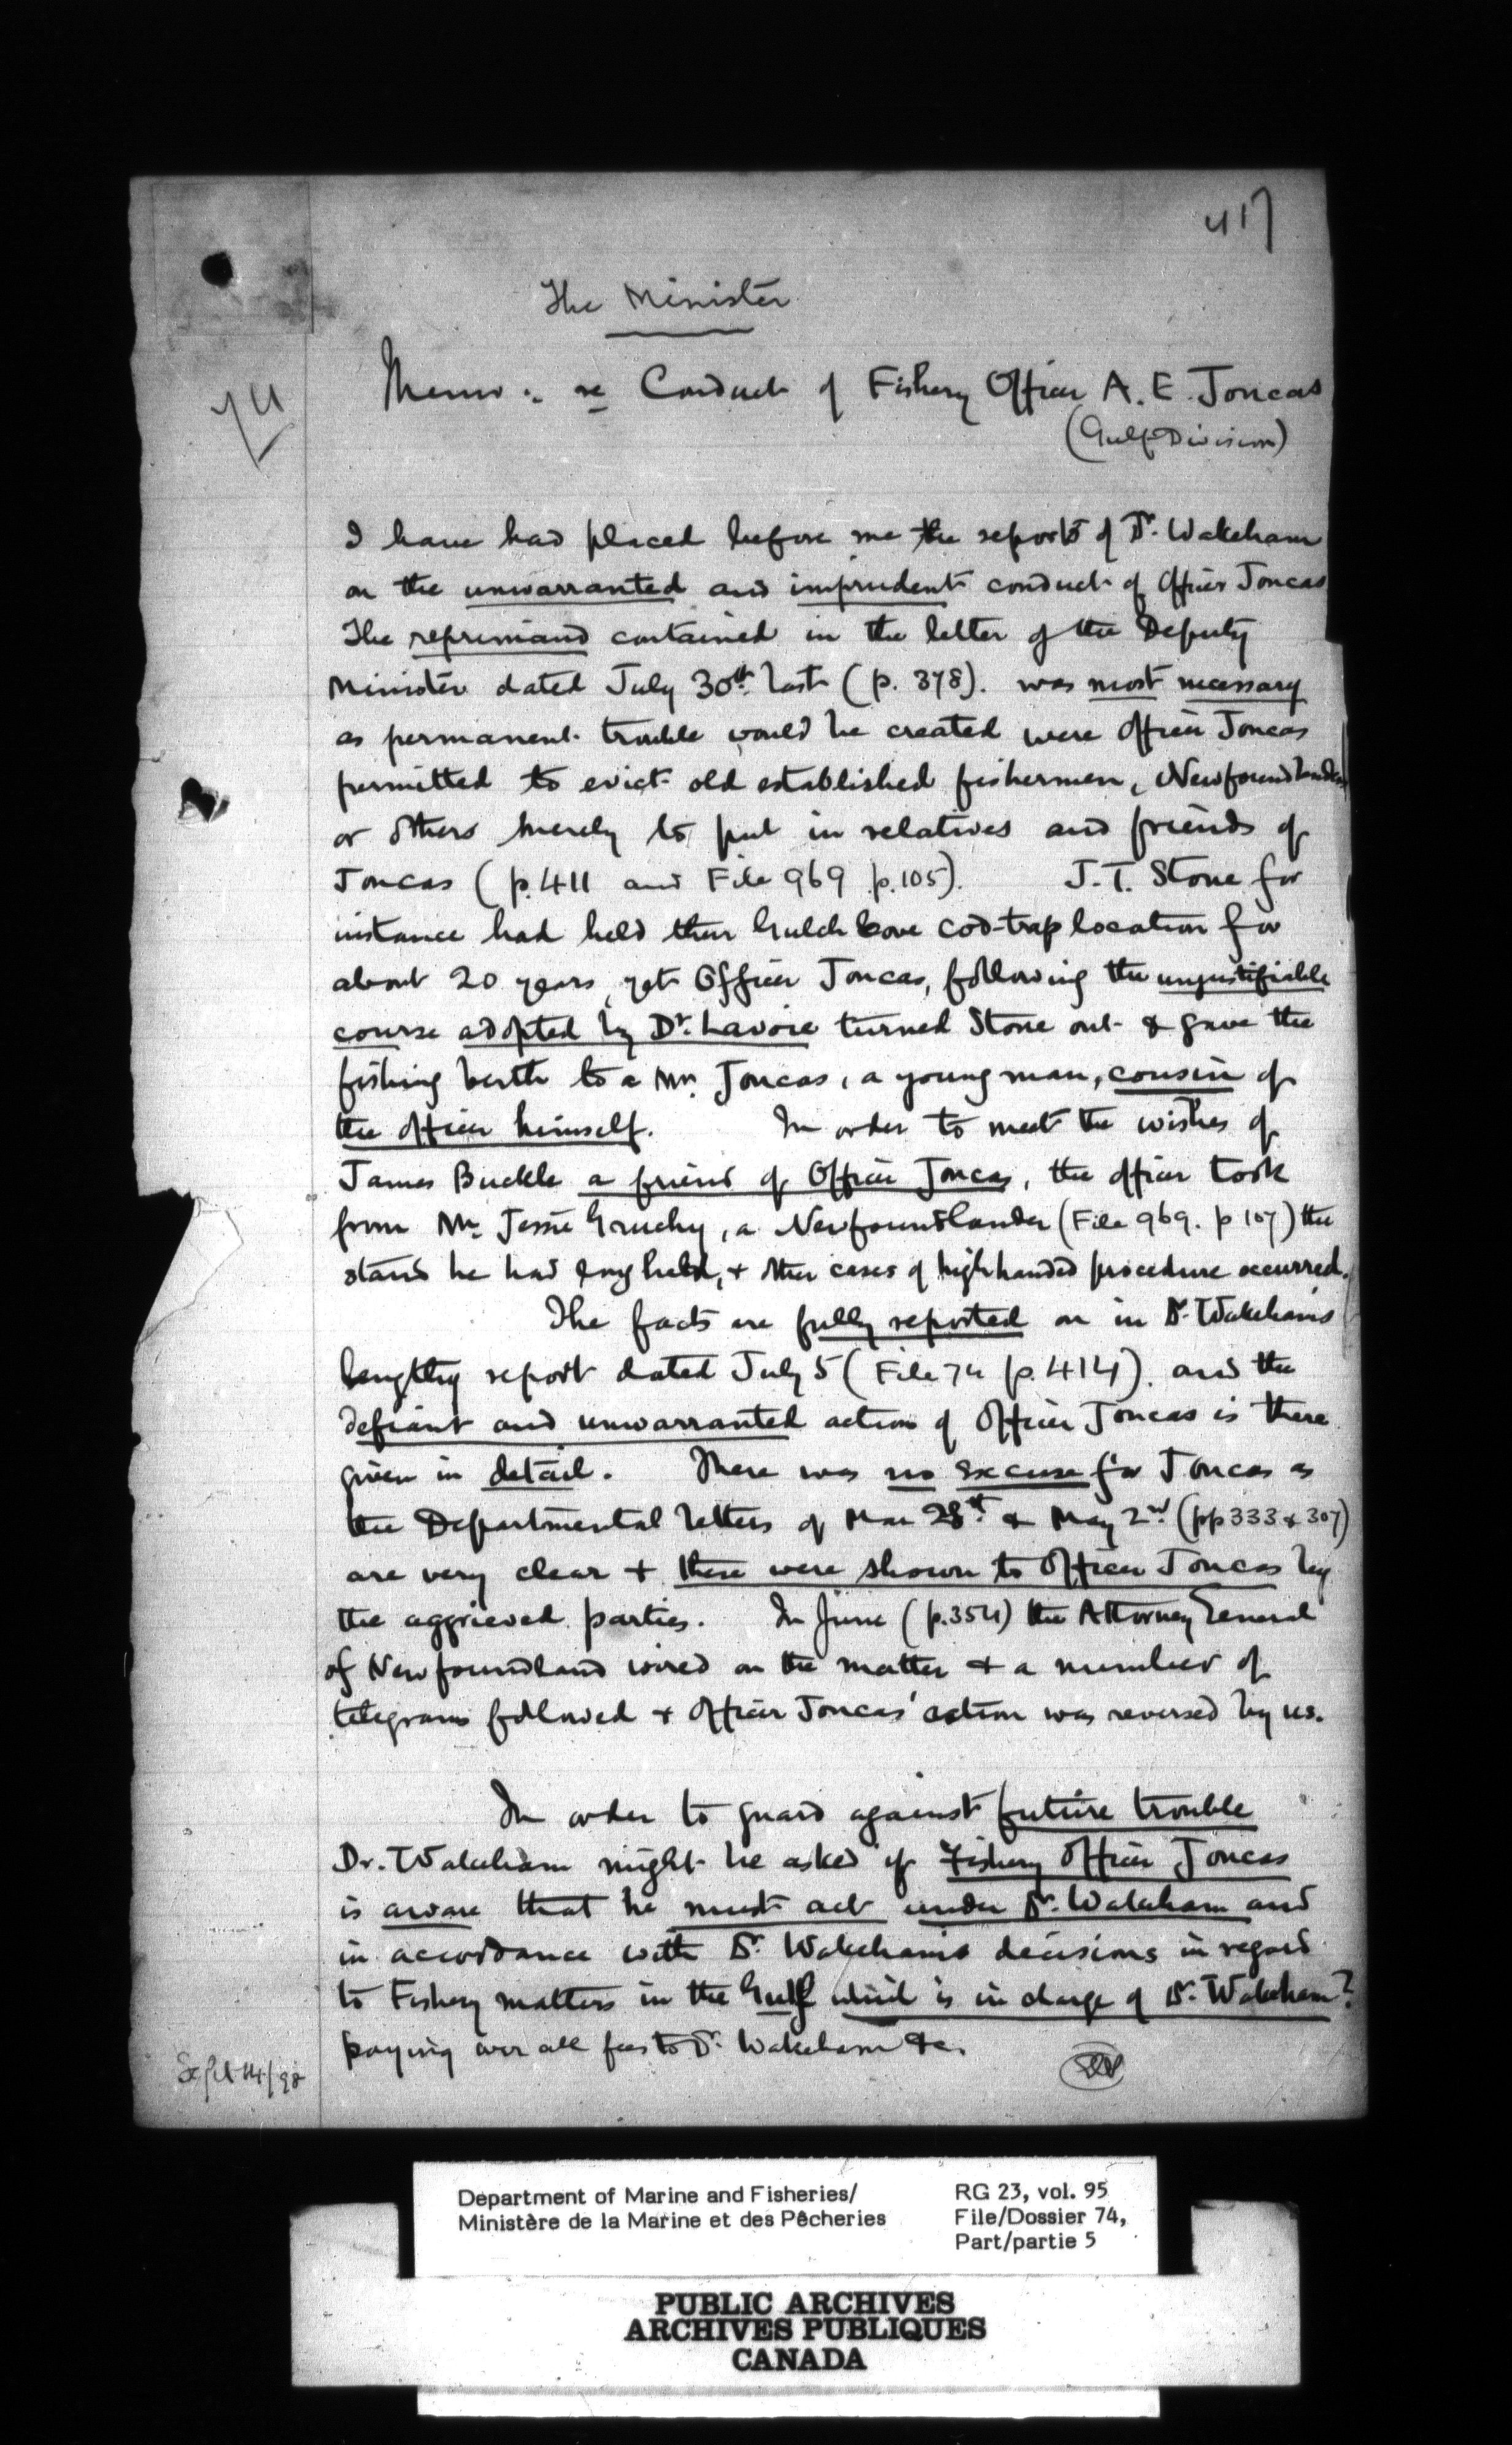 417
The Minister
74
Memo: re Conduct of Fishery Officer A. E. Joncas
(Gulf Division)
I have had placed before me the reports of Dr. Wakeham
on the unwarranted and imprudent conduct of Officer Joncas
The reprimand contained in the letter of the Deputy
Minister dated July 30th last (p. 378). was most necessary
as permanent trouble would be created were Officer Joncas
permitted to evict old established fishermen, Newfoundlanders
or others merely to put in relatives and friends of
Joncas (p. 411 and File 969 p. 105). J. T. Stone for
instance had held their Gulch Cove cod-trap location for
about 20 years, yet Officer Joncas, following the unjustifiable
course adopted by Dr. Lavoie turned Stone out & gave the
fishing berth to a Mr. Joncas, a young man, cousin of
the officer himself. In order to meet the wishes of
James Buckle a friend of Officer Joncas, the officer took
from Mr Jessie Gruchy, a Newfoundlander (File 969. p 107) the
stand he had long held, + other cases of high handed procedure occurred.
The facts are fully reported on in Dr. Wakeham's
lengthy report dated July 5 (File 74 p. 414). and the
defiant and unwarranted action of Officer Joncas is there
given in detail. There was no excuse for Joncas as
the Departmental letters of Mar 28st & May 2nd (pp 333 & 307)
are very clear + these were shown to Officer Joncas by
the aggrieved parties. In June (p. 354) the Attorney General
of Newfoundland wired on the matter + a number of
telegrams followed + Officer Joncas' action was reversed by us.
In order to guard against future trouble
Dr. Wakeham might be asked if Fishery Officer Joncas
is aware that he must act under Dr. Wakeham and
in accordance with Dr. Wakeham's decisions in regard
to Fishery matters in the Gulf which is in charge of Dr. Wakeham?
paying over all fees to Dr. Wakeham &c.
Sept 14/98
Department of Marine and Fisheries/
Ministère de la Marine et des Pêcheries
RG 23, vol. 95
File/Dossier 74,
Part/partie 5
PUBLIC ARCHIVES
ARCHIVES PUBLIQUES
CANADA